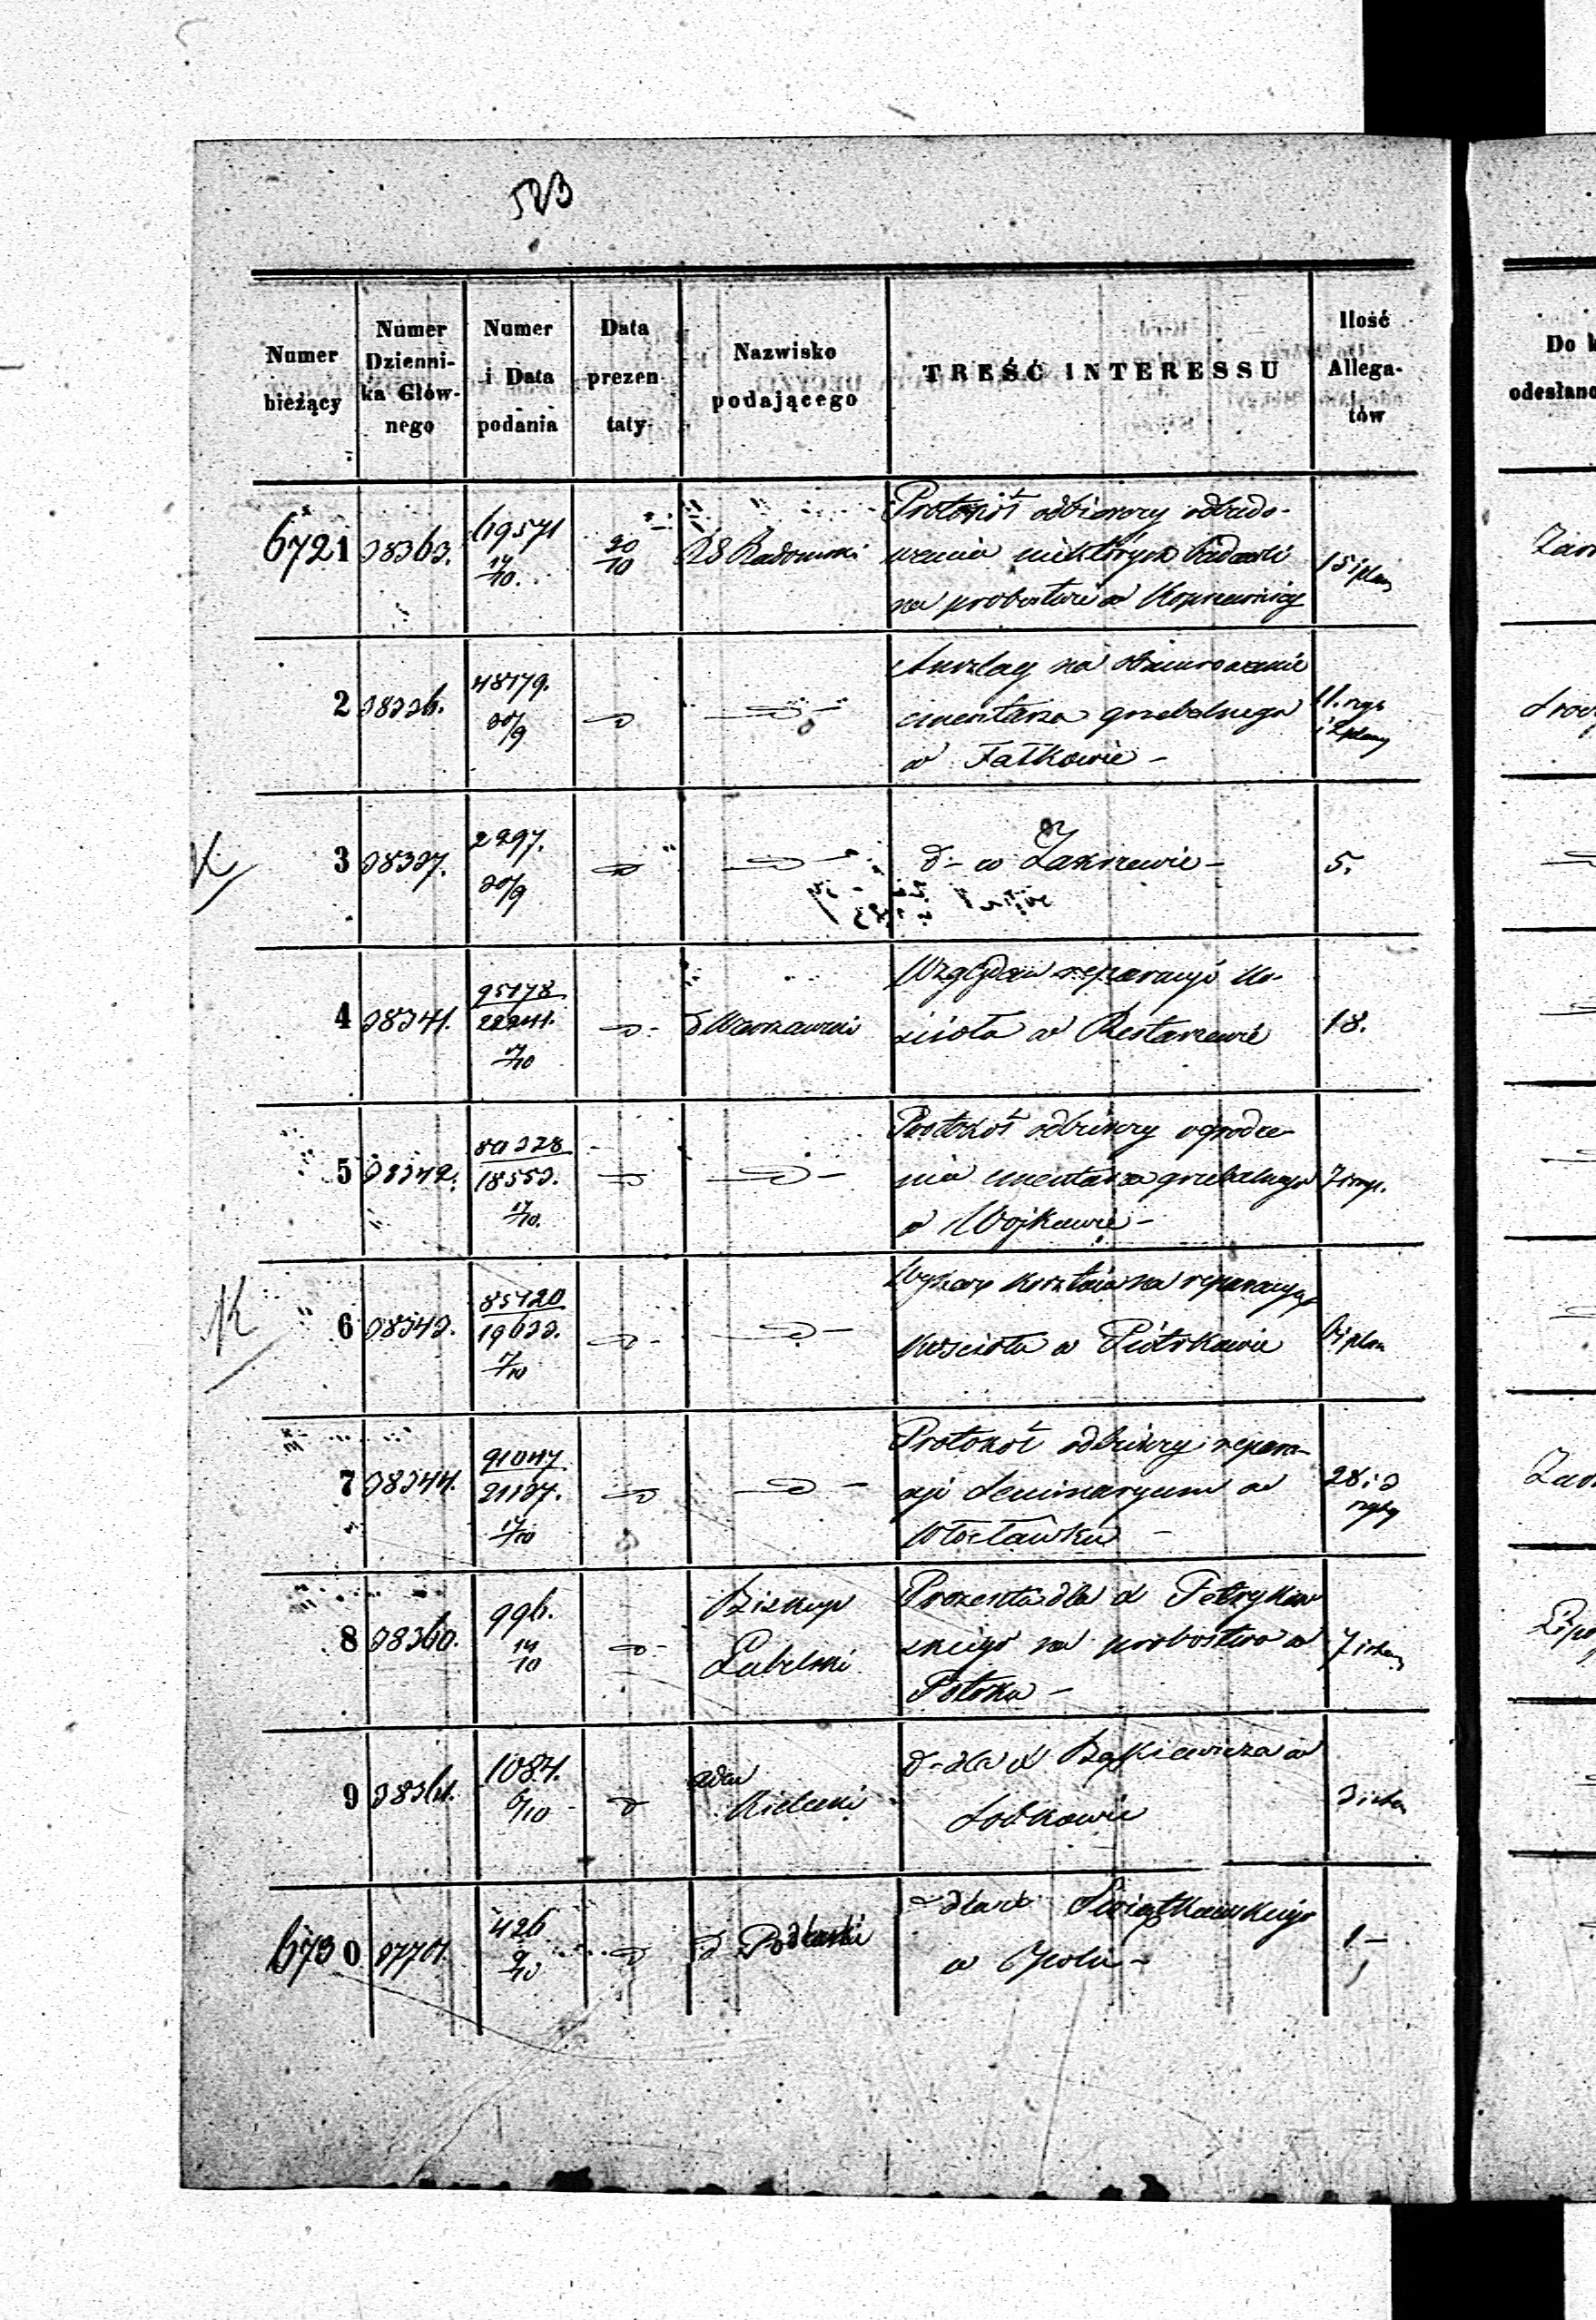 523
Numer bieżący
Numer Dzienni-ka Głów-nego
Numer i Data podania
Data prezen taty
Nazwisko podającego
TREŚĆ INTERESSU
Ilość Allega-tów
Do k
odesłano
6721 38363. 69571 17/10. 20/10 Radomski
Protokół odbiorczy odbudo-
wania niektórych budowli
na probostwie w Koprzewnicy
15 i plan
2 38336. 48179. 30/9
Anszlag na obmurowanie
cmentarza grzebalnego
w Fałkowie -
3 38337. 2297. 30/9
d- w Zakrzewie -
5.
4 38341. 95178 22241. 17/10 d Warszawski
Względem reparacyi ko-
ścioła w Restarzewie
18.
5 38342. 80328 18553. 17/10.
Protokół odbiorczy ogrodze-
nia cmentarza grzebalnego
w Wojkowie -
6 38343. 85420 19633. 17/10
Wykazy kosztów na reparacyą
kościoła w Piotrkowie
7 38344. 91047 21137. 17/10
Protokół odbiorczy repara-
cyi Seminaryum w
Włocławku -
28 i 3
8 38360. 996. 14/10
Biskup
Lubelski
Prezenta dla X Petrykow
skiego na probostwo w
Potoku -
9 38361. 1084. 6/10
Kielecki
d- dla X Bąkiewicza w
Sobkowie
6730 37701. 426 9/10 d Podlaski
dla X Świątkowskiego
w Opolu -
1 -